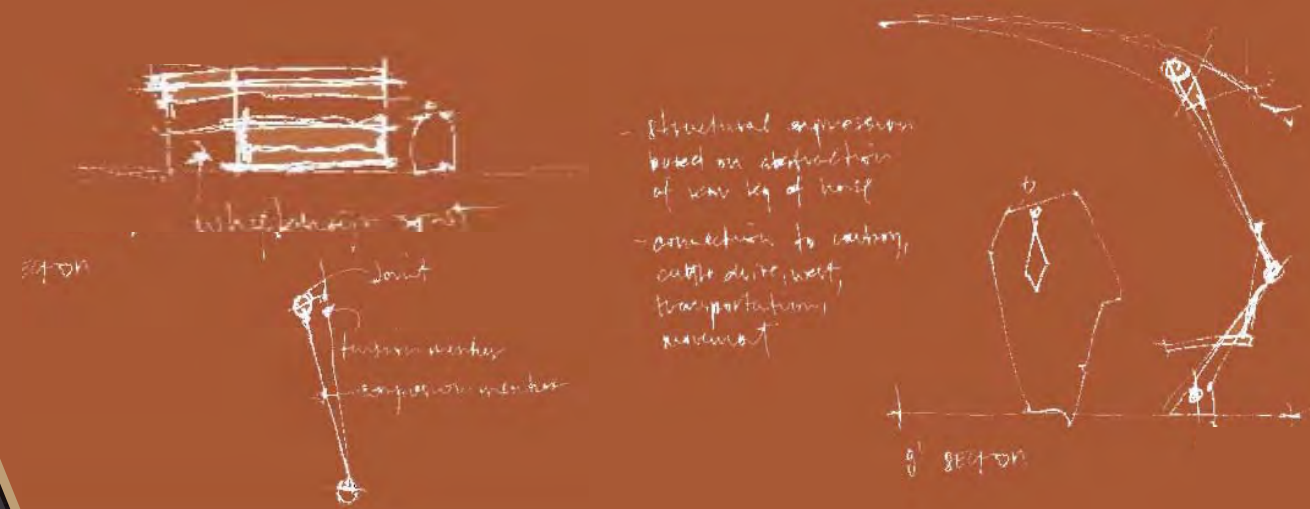 wheelchair
ECTION
Joint
tension member
compression member
- structural expression
based on abstraction
of leg of horse
- connection to
cattle drive, west,
transportation,
movement
8' SECTION